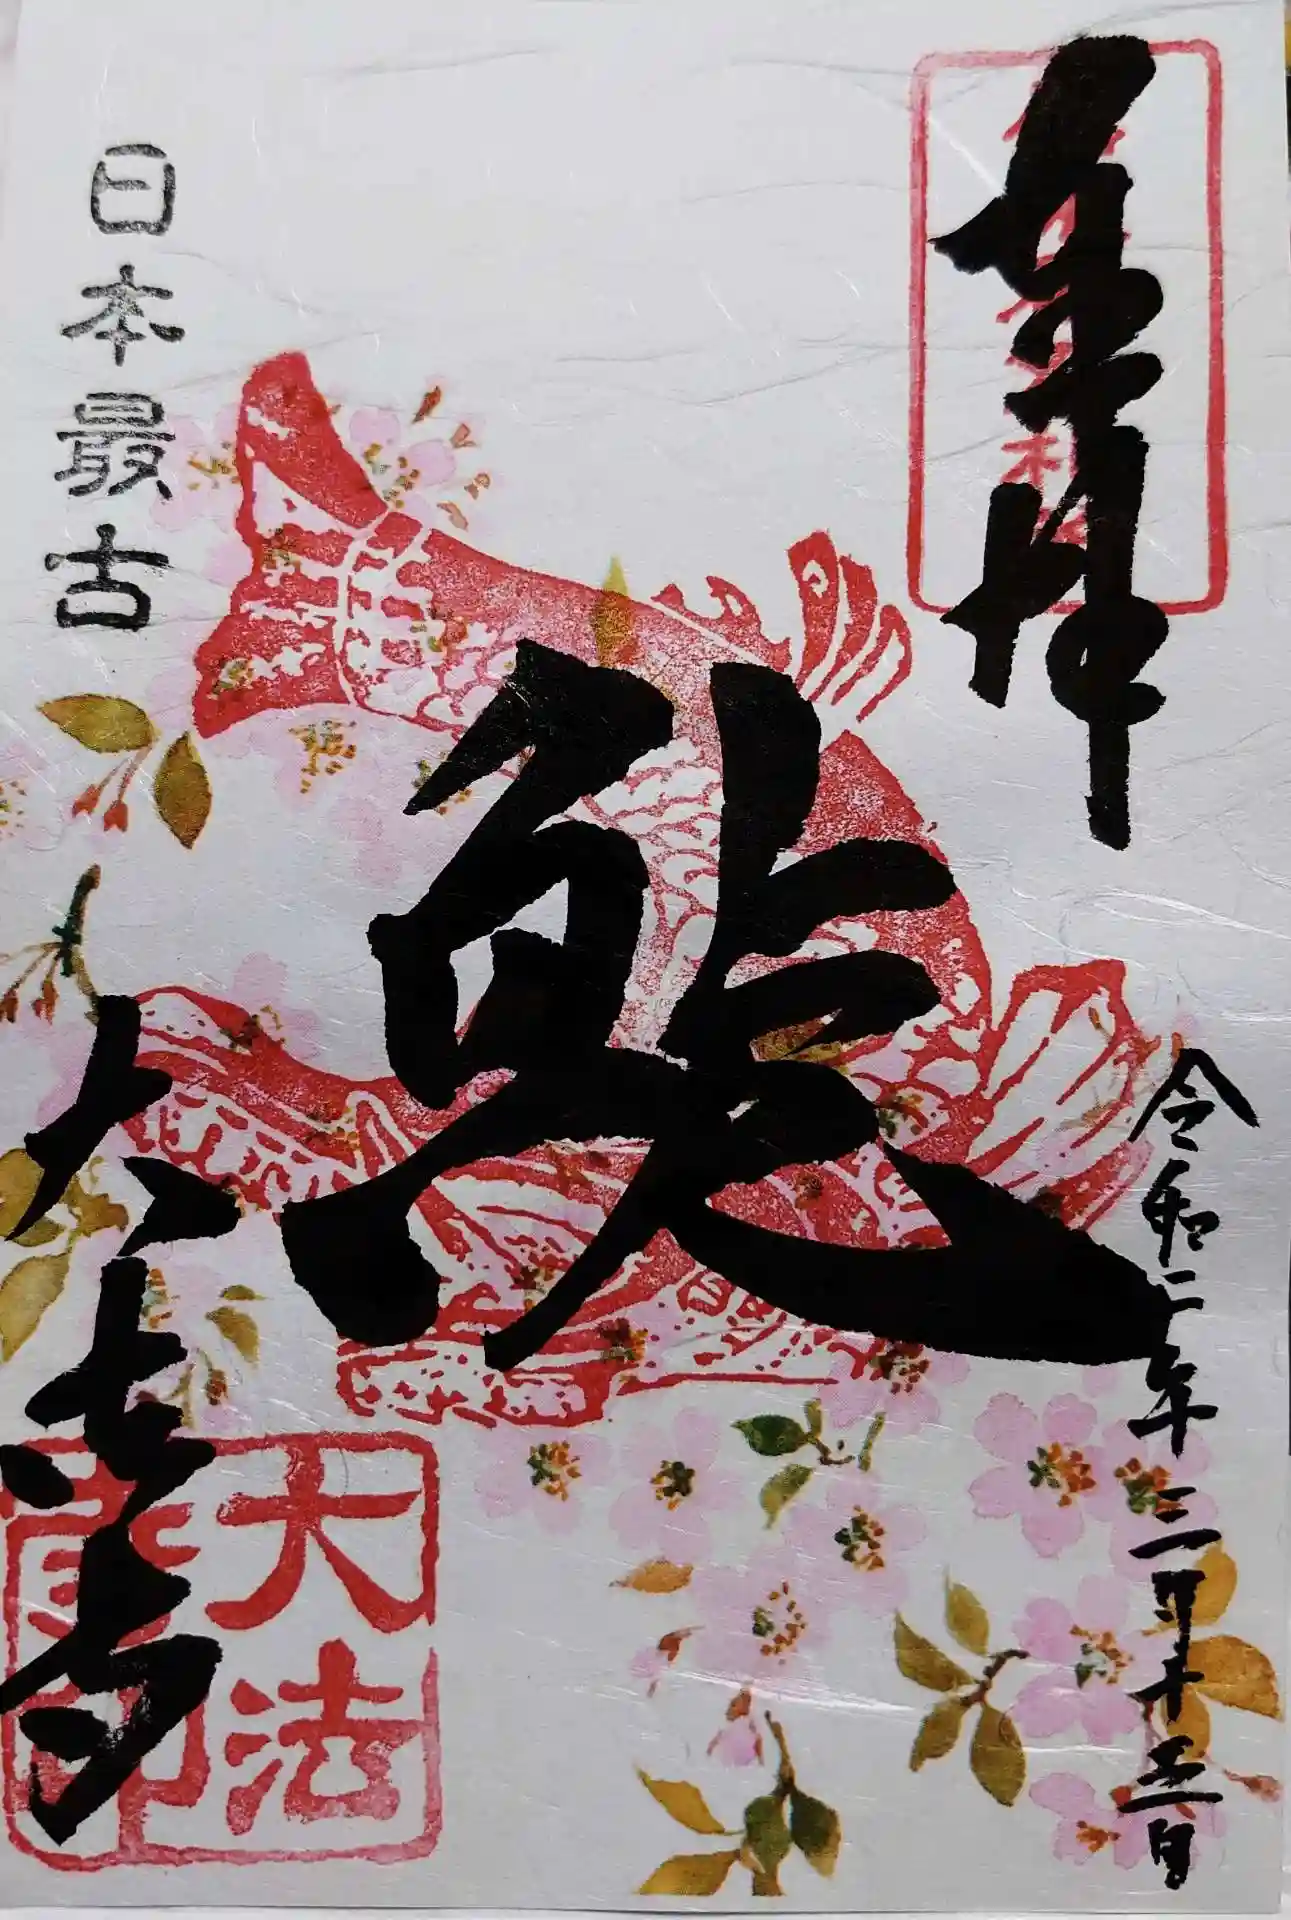 奉拝
令和二年三月十五日
鯱
日本最古
大法寺
大法